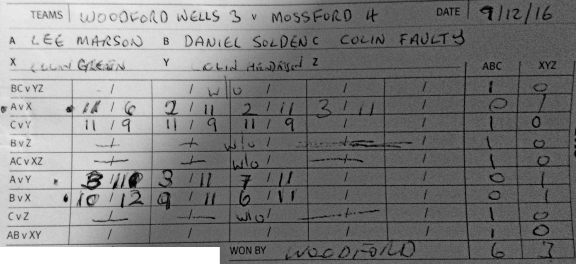 TEAMS WOODFORD WELLS 3 V MOSSFORD 4 DATE 9/12/16
A LEE MARSON B DANIEL SOLDEN C COLIN FAULTY
X GREEN Y Z
ABC XYZ
BC v YZ / W/O / / / 1 0
A v X 11 / 6 2 / 11 2 / 11 3 / 11 / 0 1
C v Y 11 / 9 11 / 9 11 / 9 / / 1 0
B v Z / / W/O / / 1 0
AC v XZ / / W/O / / 1 0
A v Y 3 / 11 7 / 11 / / 0 1
B v X 10 / 12 9 / 11 6 / 11 / / 0 1
C v Z / / W/O / / 1 0
AB v XY / / / / / 1 0
WON BY WOODFORD 6 3